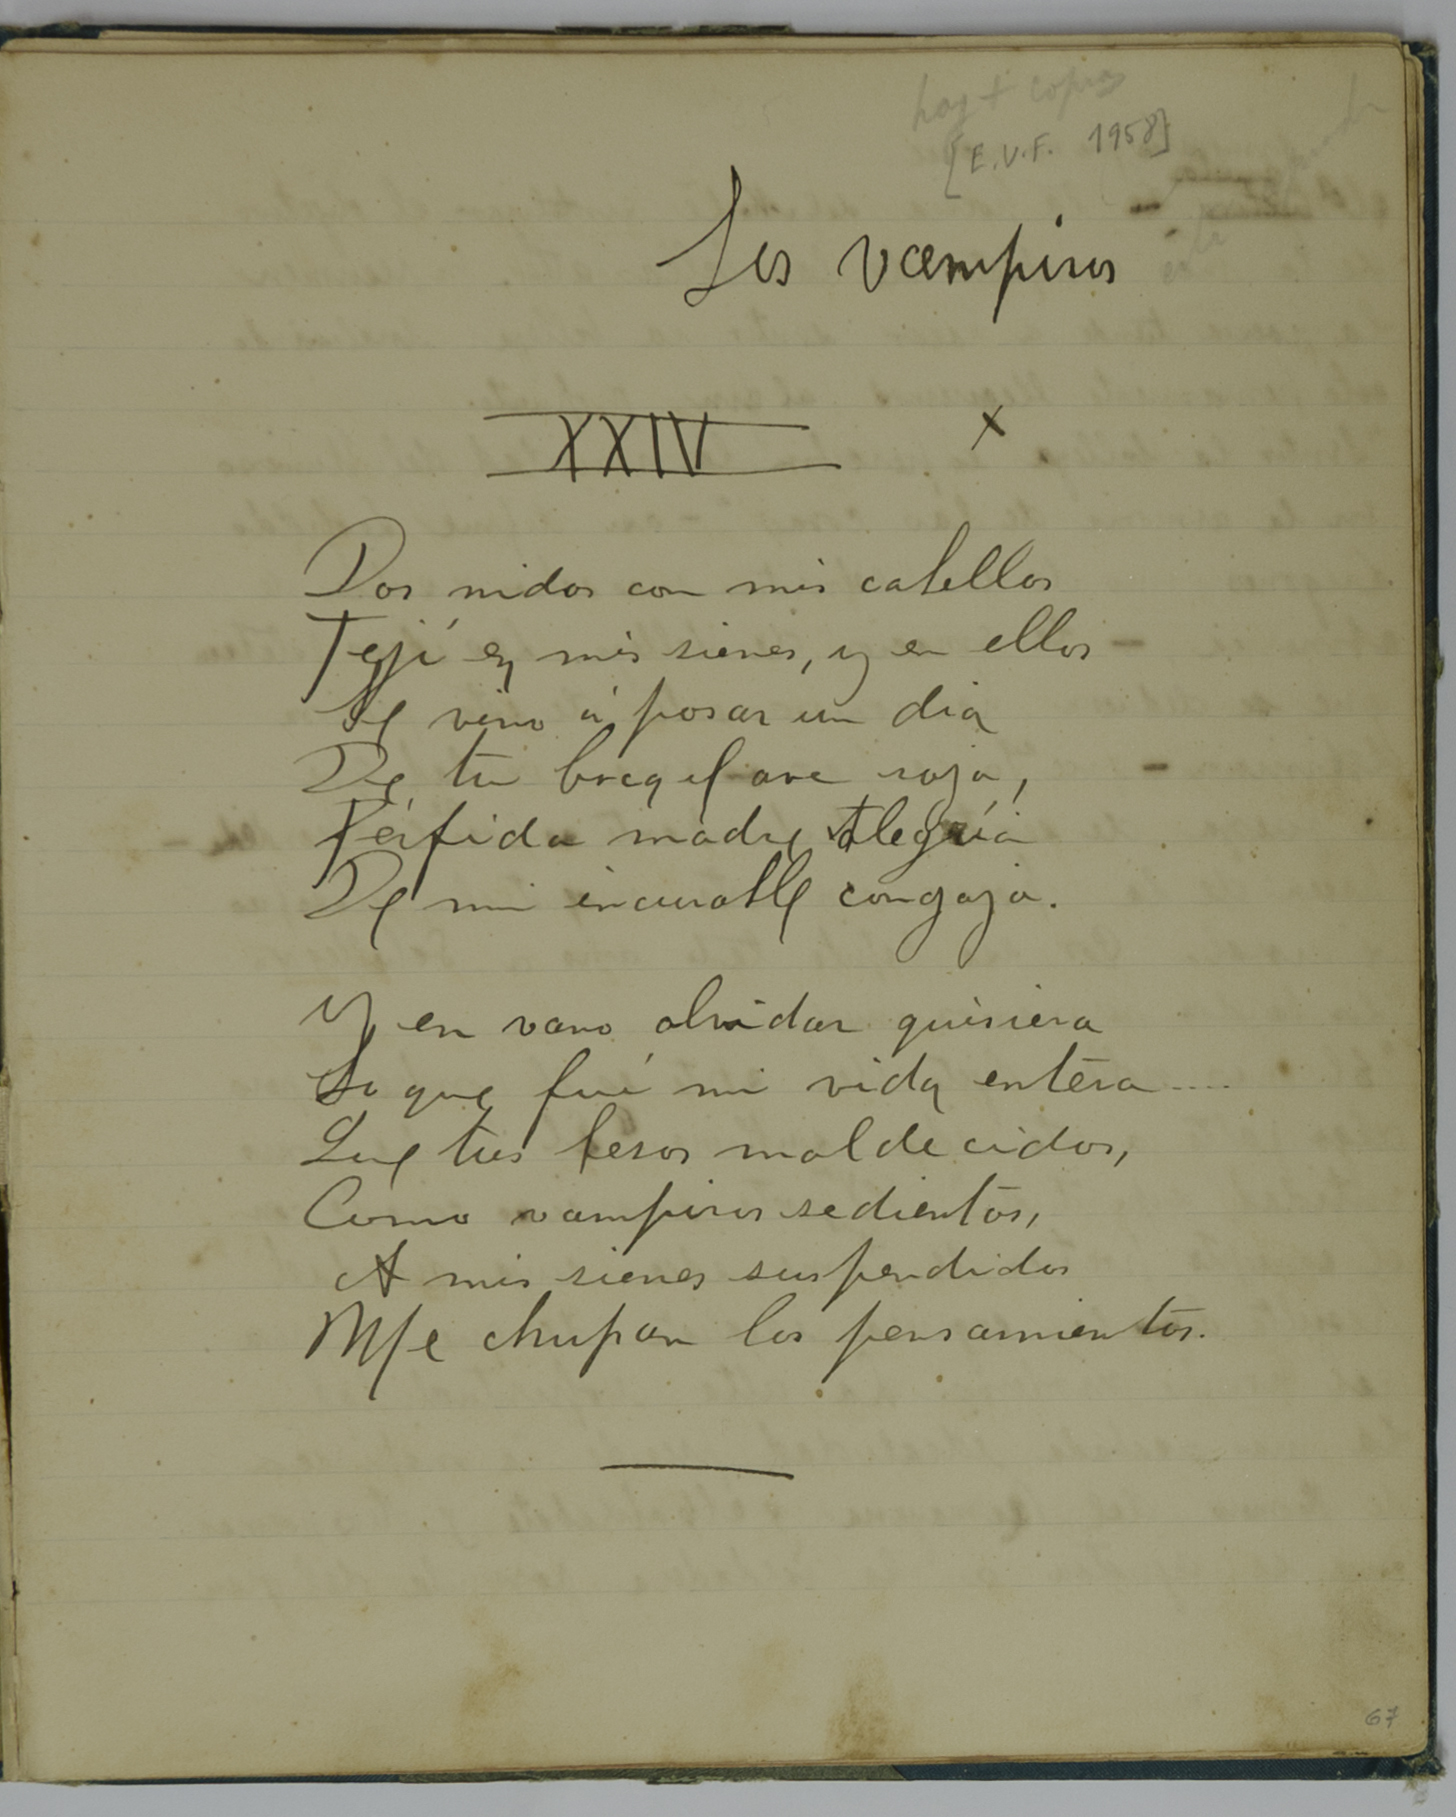 hay + copias
[E.V.F. 1958]
Los vampiros
XXIV x
Dos nidos con mis cabellos
Tejí en mis sienes, y en ellos
Se vino á posar un dia
De tu boca el ave roja,
Pérfida madre Alegría
De mi incurable congoja.
Y en vano olvidar quisiera
Lo que fué mi vida entera....
Que tus besos maldecidos,
Como vampiros sedientos,
A mis sienes suspendidos
Me chupan los pensamientos.
67